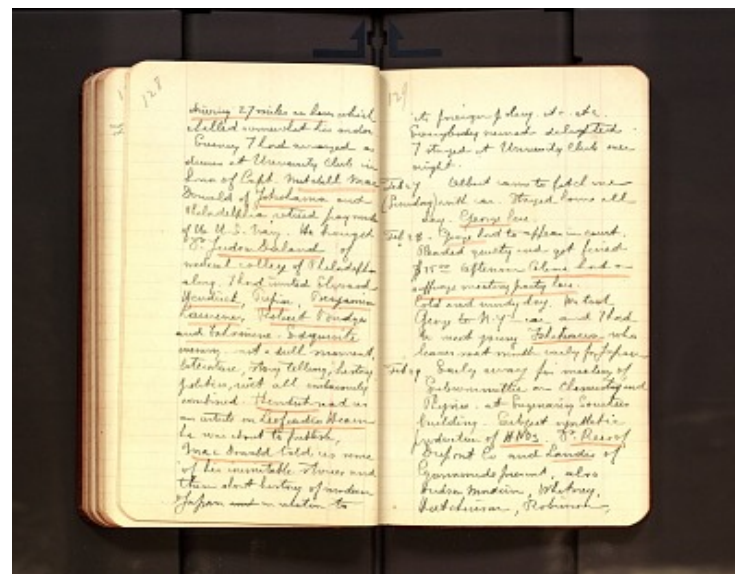 128
driving 27 miles an hour which
chilled somewhat his ardor
Evening I had arranged a
dinner at University Club in
honor of Capt. Mitchell Mac
Donald of Yokohama and
Philadelphia, retired paymaster
of the U.S. Navy. He brought
Dr. Judson Daland of
medical college of Philadelphia
along. I had invited Ellwood
Hendrick, Pupin, Benjamin
Lawrence, Robert
and Takamine. Exquisite
evening. not a dull moment,
literature, story telling, history
politics, wit all
combined. Hendrick read us
an article on Leofcadio Hearn
he was about to publish,
Mac Donald told us some
of his inimitable stories and
then about history of modern
Japan in relation to
129
its foreign policy. etc. etc.
Everybody seemed delighted.
I stayed at University Club over
night.
Feb 27 Albert came to fetch me
(Sunday) with car. Stayed home all
day. George here.
Feb 28. George had to appear in court.
Pleaded guilty and got fined
$15.00 Afternoon Celine had a
suffrage meeting party here.
Cold and windy day. We took
George to N.Y. in car and I had
to meet Takamine who
leaves next month early for Japan
Feb 29 Early away for meeting of
Subcommittee on Chemistry and
Physics. at Engineering Societies
building. Subject synthetic
production of HNO3. Dr. Reese of
Dupont Co and Landis of
Cyanamide present, also
Whitney,
Hutchinson, Robinson,